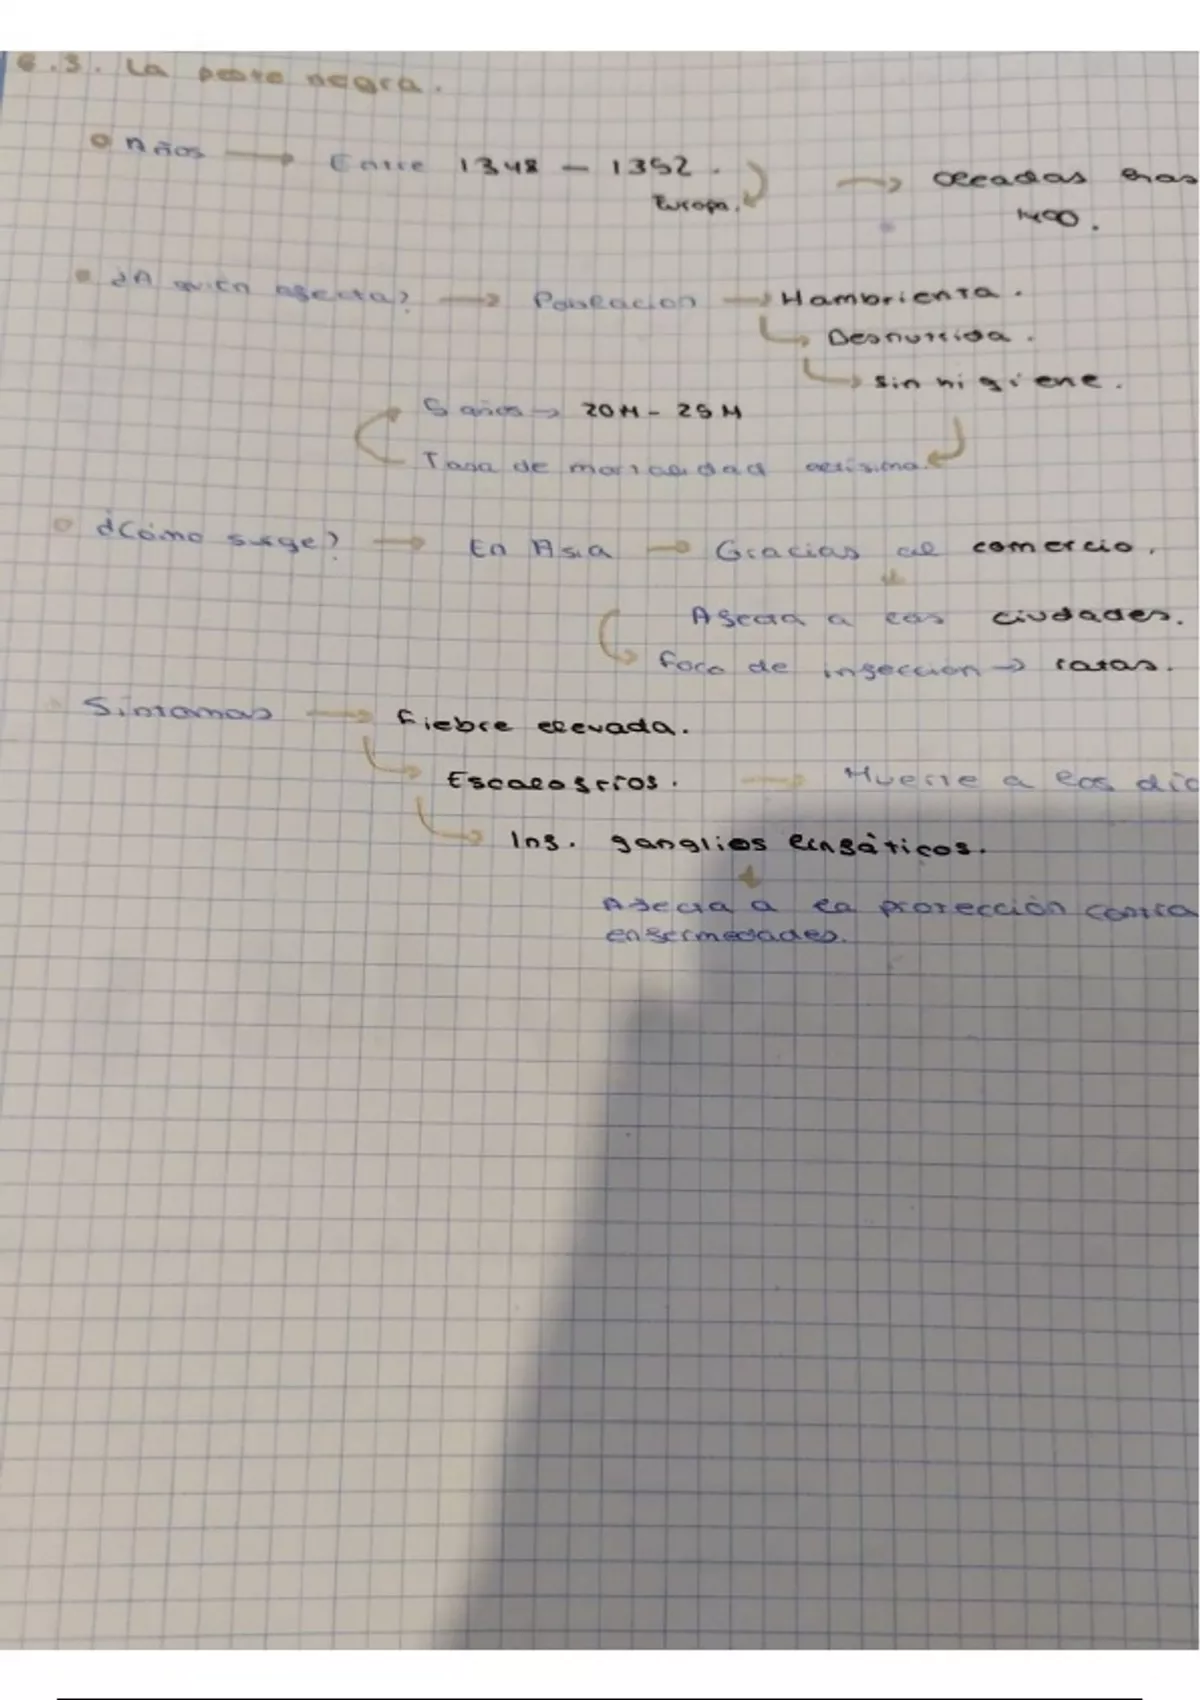 6.3. La peste negra.
Años → Entre 1348 – 1352. → decadas eras
Europa. 1400.
¿A quién afecta? → Población → Hambrienta.
Desnutrida.
sin higiene.
5 años → 20M - 25M
Tasa de mortalidad altísima.
¿Cómo surge? → En Asia → Gracias al comercio.
Afecta a las ciudades.
Foco de infección → ratas.
Síntomas → Fiebre elevada.
Escalofríos. → Muerte a los día
Inf. ganglios linfáticos.
Afecta a la protección contra
enfermedades.